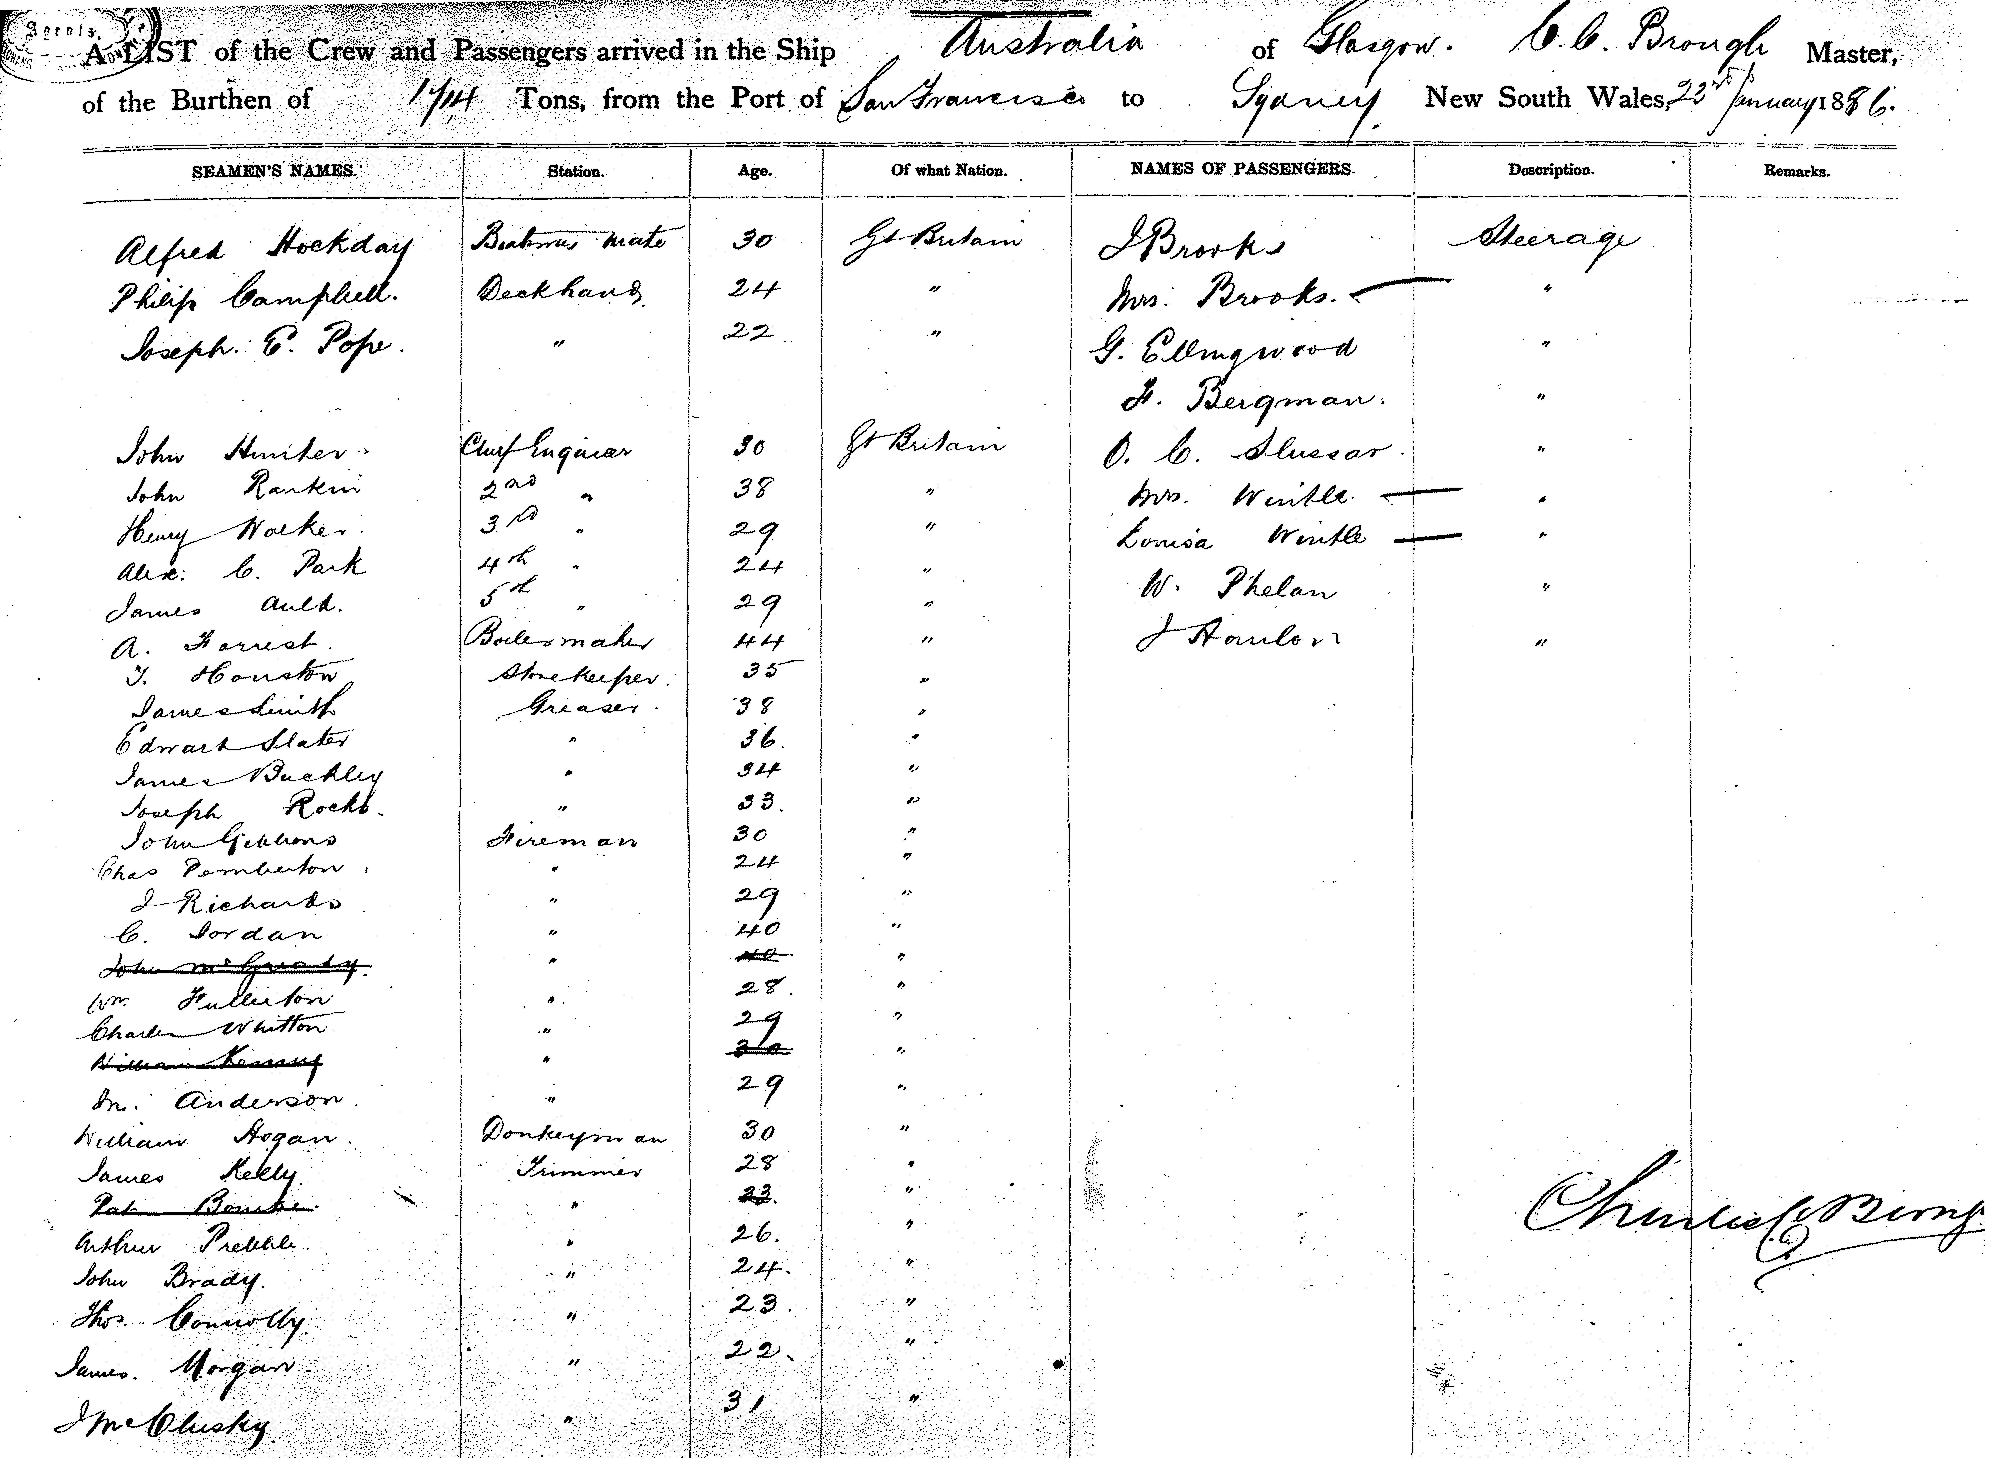 Agents,
A LIST of the Crew and Passengers arrived in the Ship Australia of Glasgow. C. C. Brough Master,
of the Burthen of 1714 Tons, from the Port of San Francisco to Sydney New South Wales, 22nd January 1886.
SEAMEN'S NAMES. Station. Age. Of what Nation. NAMES OF PASSENGERS. Description. Remarks.
Alfred Hockday Boatswns mate 30 Gt Britain J Brooks Steerage
Philip Campbell. Deckhand 24 " Mrs. Brooks. "
Joseph. E. Pope. " 22 " G. Ellingwood "
F. Bergman. "
John Hunter. Chief Engineer 30 Gt Britain O. C. Slussar. "
John Rankin 2nd " 38 " Mrs. Wintle. "
Henry Walker. 3rd " 29 " Louisa Wintle "
Alex. C. Park 4th " 24 " W. Phelan "
James Auld. 5th " 29 " J Hanlon "
A. Forrest. Boilermaker 44 "
T. Houston Storekeeper. 35 "
James Smith Greaser. 38 "
Edward Slater " 36. "
James Buckley " 34 "
Joseph Rocks. " 33. "
John Gibbons Fireman 30 "
Chas Pemberton. " 24 "
J Richards " 29 "
C. Jordan " 40 "
John McGrady. " 40 "
Wm. Fullerton " 28. "
Charles Whitton " 29 "
William " 30 "
Jn. Anderson. " 29 "
William Hogan. Donkeyman 30 "
James Kelly. Trimmer 28 "
Pat Bourke. " 23. "
Arthur Prebble. " 26. "
John Brady. " 24. "
Thos. Connolly. " 23. "
James. Morgan. " 22. "
J McClusky " 31 "
Charles C Brough